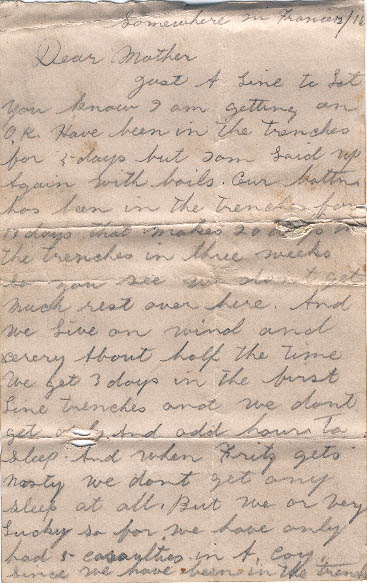 Somewhere in France
Dear Mother
Just A Line to Let
You know I am getting on
O.K. Have been in the trenches
for 5 days but I am Laid up
Again with boils. Our
has been in the trenches for
days that makes 20 days in
the trenches in three weeks
so you see we dont get
much rest over here. And
we Live on wind and
About half the time
We get 3 days in the first
Line trenches and we dont
get And odd hours To
Sleep. And when Fritz gets
Nasty we dont get any
sleep at all. But we or very
Lucky so far we have only
had 5 in A. Coy.
since we have been in the